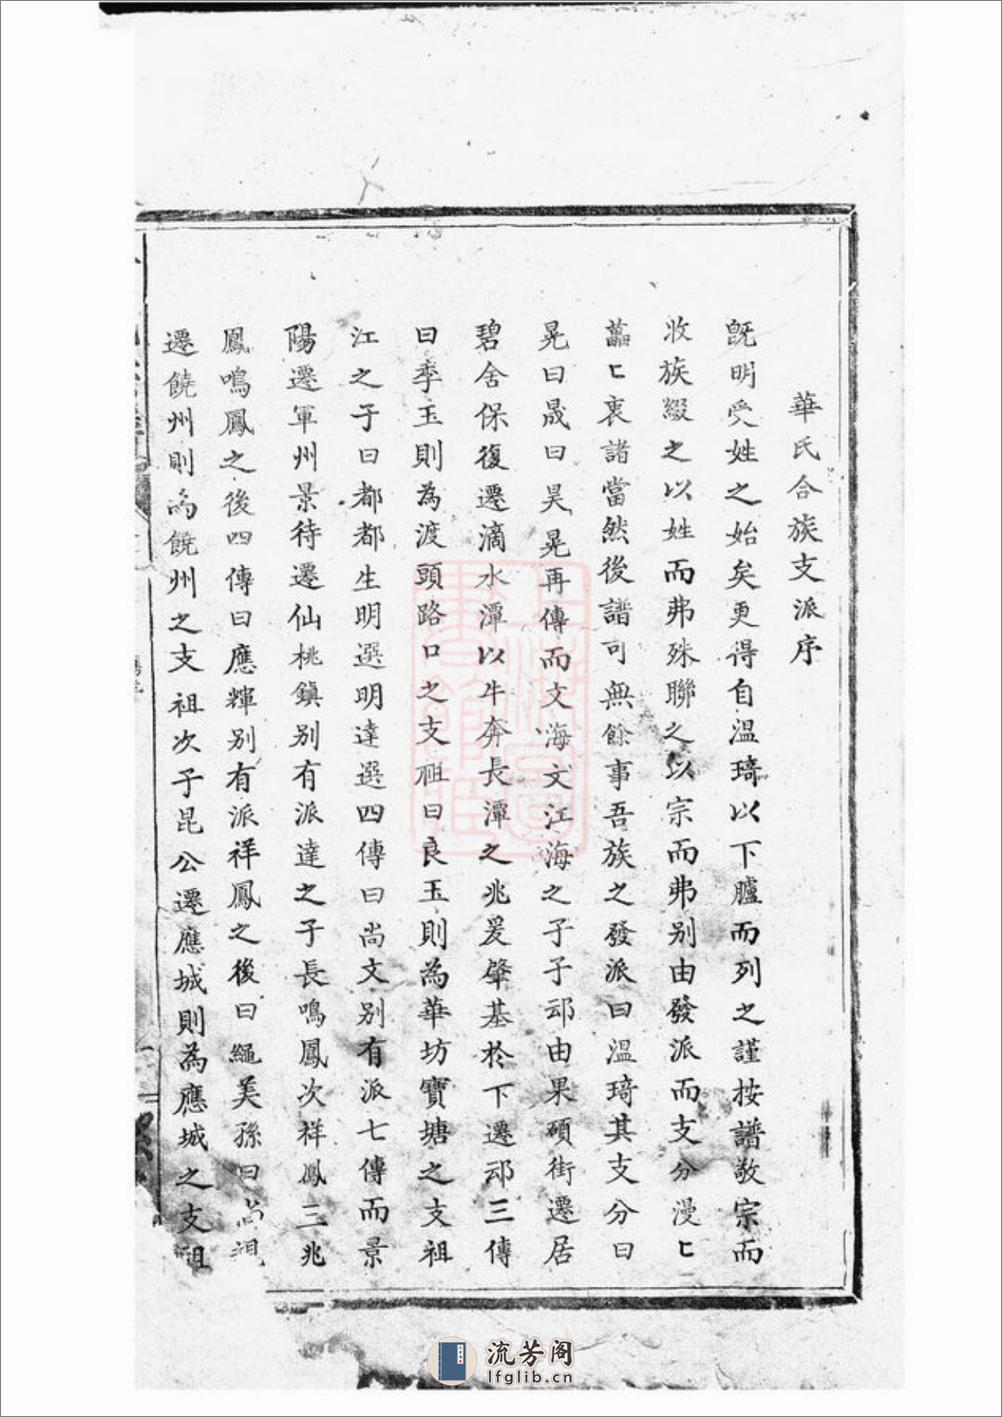 華氏合族支派序
既明受姓之始矣更得自溫琦以下臚而列之謹按譜敬宗而
收族綴之以姓而弗殊聯之以宗而弗別由發派而支分漫匕
藟匕裏諸當然後譜可無餘事吾族之發派曰溫琦其支分曰
晃曰晟曰昊晃再傳而文海文江海之子子邧由果碩街遷居
碧舍保復遷滴水潭以牛奔長潭之兆爰肇基於下遷邧三傳
曰季玉則為渡頭路口之支祖曰良玉則為華坊寶塘之支祖
江之子曰都都生明選明達選四傳曰尚文別有派七傳而景
陽遷軍州景待遷仙桃鎮別有派達之子長鳴鳳次祥鳳三兆
鳳鳴鳳之後四傳曰應輝別有派祥鳳之後曰繩美孫曰尚祖
遷饒州則為饒州之支祖次子昆公遷應城則為應城之支祖
流芳阁
lfglib.cn